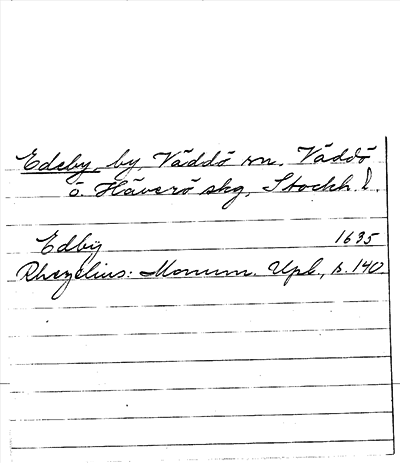 Edeby, by, Väddö sn. Väddö
o. Häverö skg, Stockh. l.
Edby 1635
Rhezelius: Monum. Upl., s. 140.